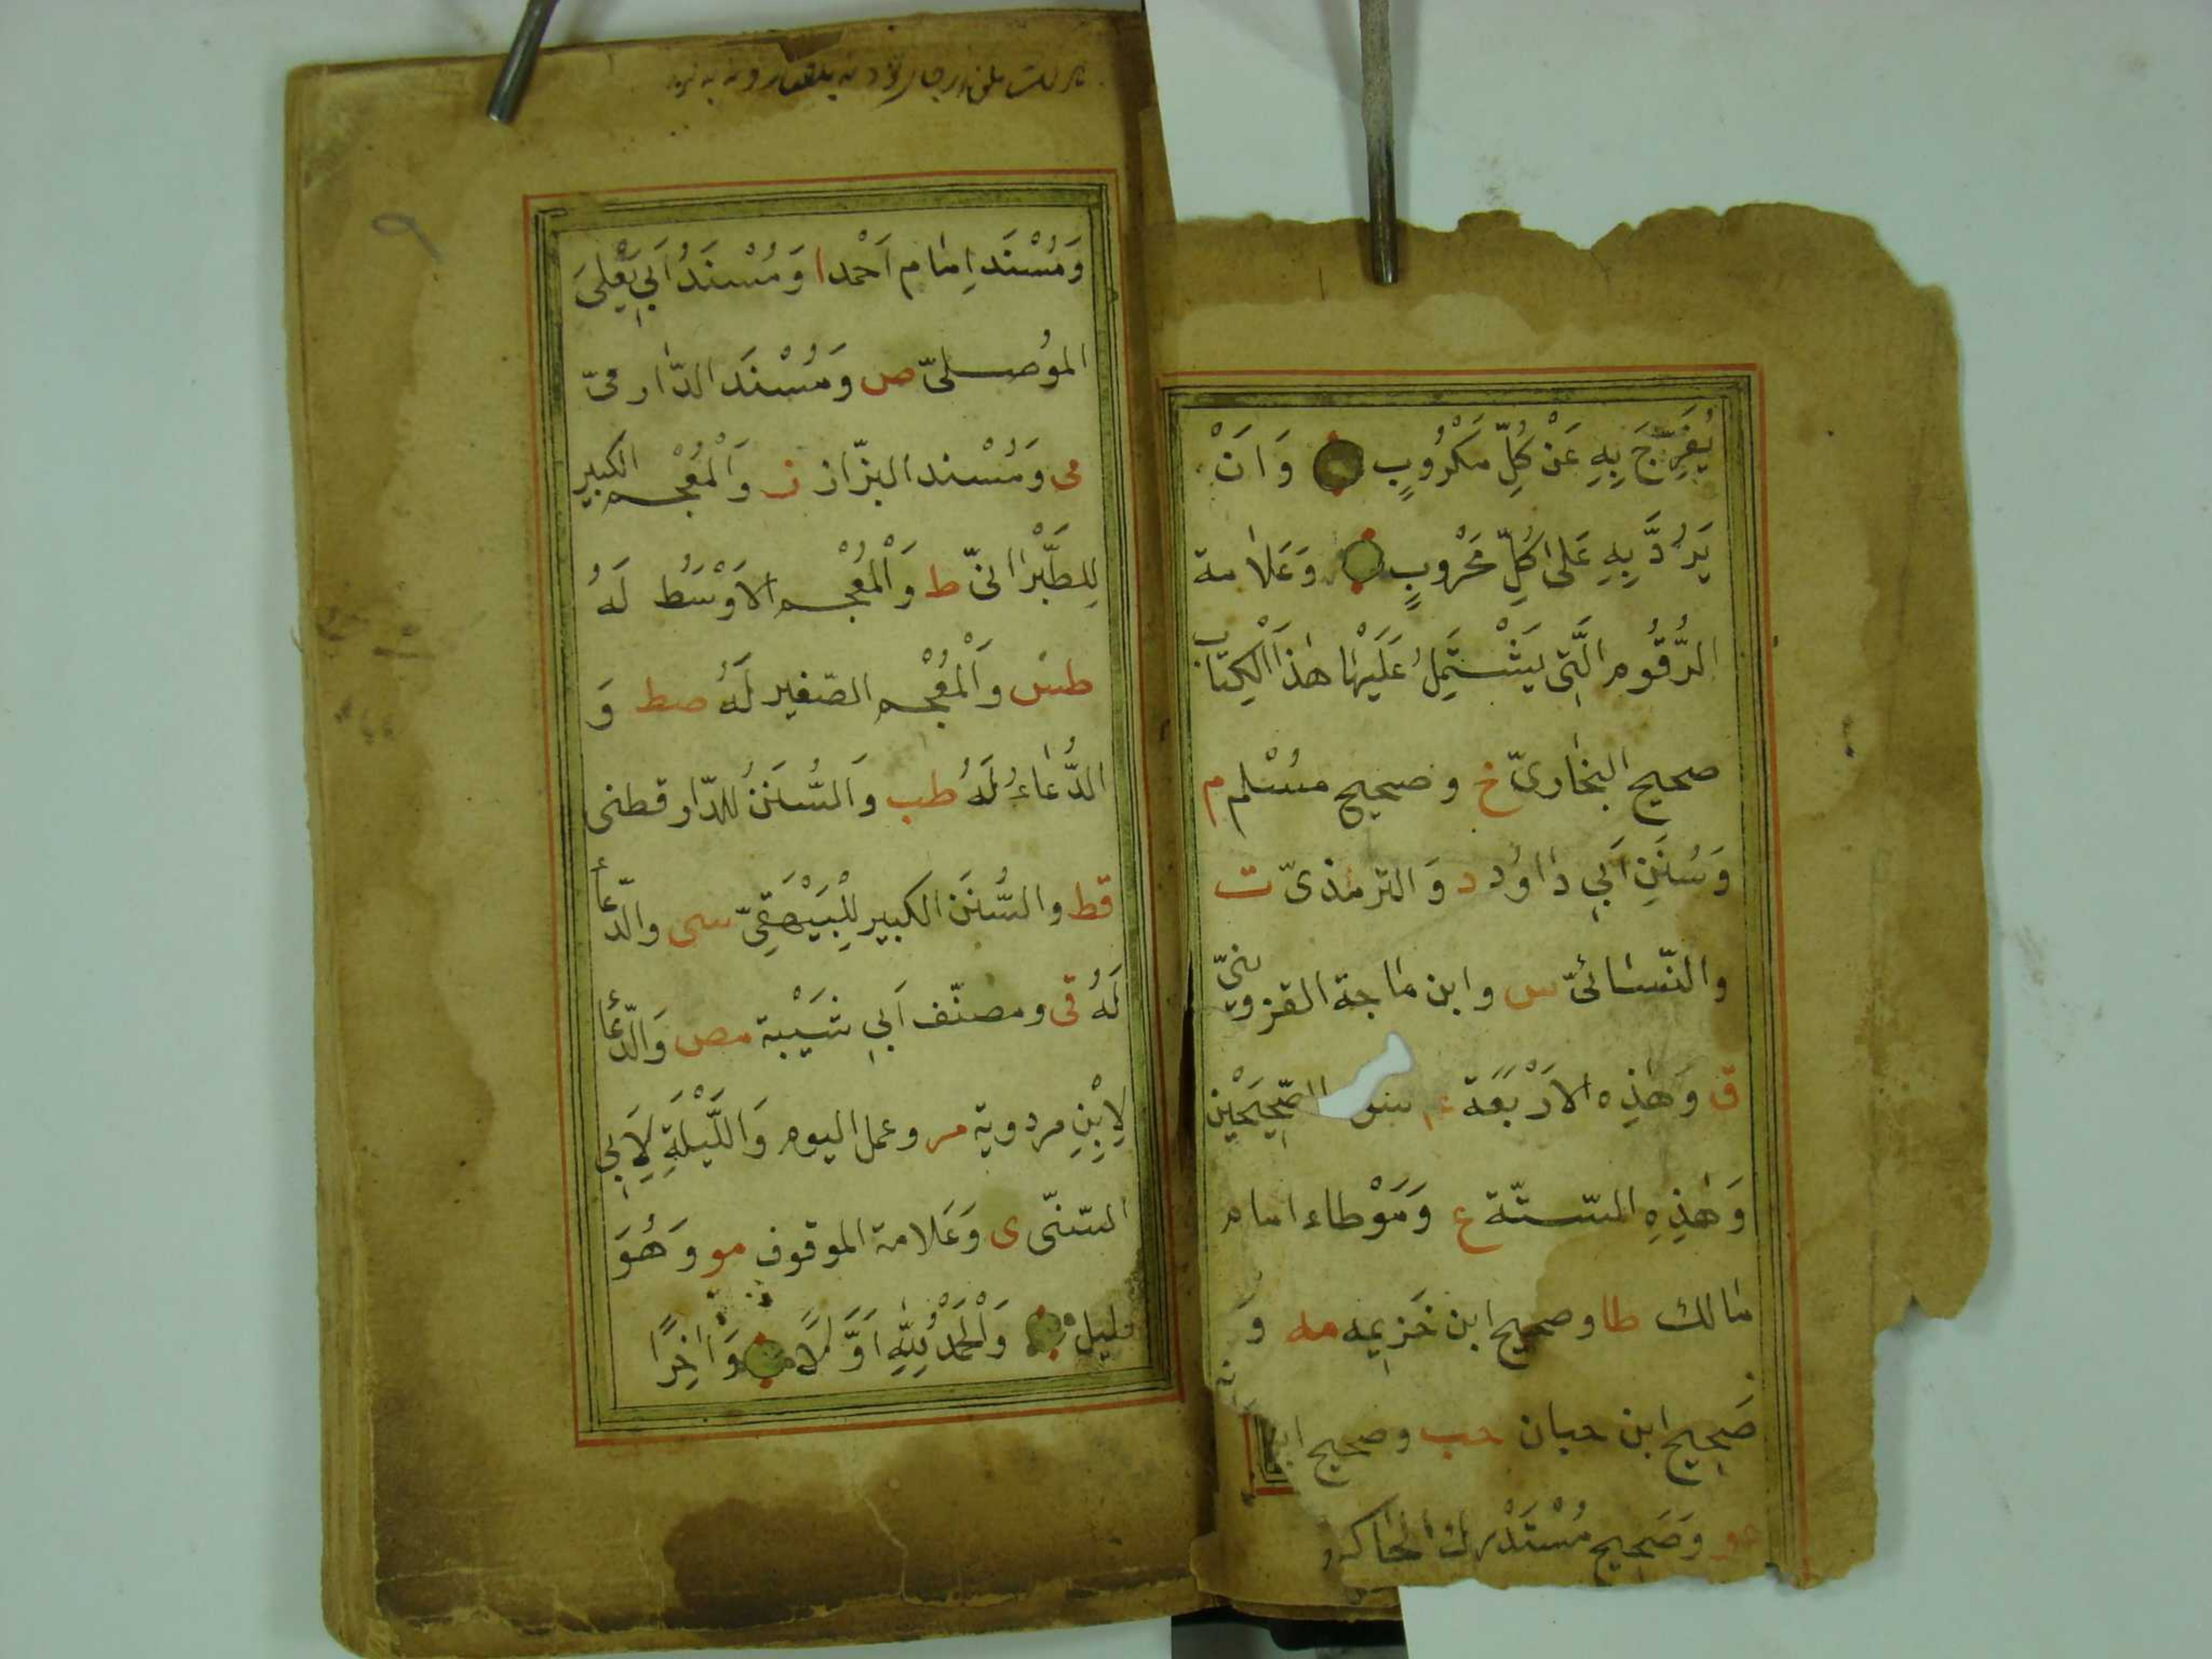 يُفَرِّجَ بِهِ عَنْ كُلِّ مَكْرُوبٍ وَاَنْ
يَرُدَّ بِهِ عَلٰى كُلِّ مَحْرُوبٍ وَعَلَامة
الرُّقُومِ الَّتِى يَشْتَمِلُ عَلَيْهَا هٰذَا الْكِتَاب
صحيح البخارىّ خ وصحيح مُسْلم م
وَسُنَنِ اَبِي دَاوُد د وَالترمذىّ ت
والنّسائىّ س وابن ماجة القزوينىّ
ق وَهٰذِه الاَرْبَعَة
وَهٰذِهِ السّتّة ع وَمَوْطاء امام
مالك طا وصحيح ابن خَزِيمه مه وَ
صَحِيح ابن حبان حب وصحيح
وَصَحِيح مُسْتَدْرك الحاكم
وَمُسْنَد اِمام اَحْمد ا وَمُسْنَدُ اَبِي يَعْلىَ
الموُصلىّ ص وَمُسْنَد الدّارمىّ
مى وَمُسْند البزّاز ز وَالْمُعْجم الكبير
لِلطَّبْرانىّ ط وَالْمُعْجم الاَوْسَط لَهُ
طس وَالْمُعْجم الصّغير لَهُ صط وَ
الدُّعَاءُ لَهُ طب وَالسُّنَنُ للدّارقطنى
قط والسُّنَن الكبير لِلْبَيْهَقِىّ سى والدّعأ
لَهُ قى ومصنّف اَبِي شَيْبة مص وَالدّعأ
لاِبْنِ مردوية مر وعمل اليوم وَاللَّيْلَةِ لاَِبِي
السّنّى ى وَعَلامة الموقوف مو وَهُوَ
قليل وَالْحَمْدُ لِلّٰهِ اَوَّلًا وَاٰخِرًا